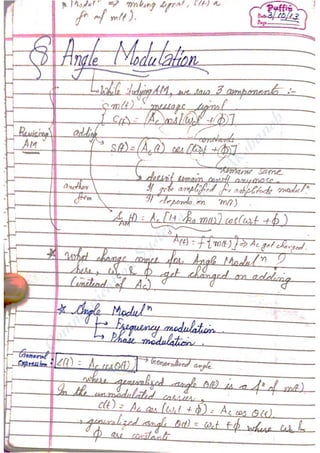 Puffin
Date 3/10/13
Page
fn of m(t).
§ Angle Modulation
While studying AM, we saw 3 components :-
m(t) : message signal
C(t) = Ac cos[ωct + φ]
constants
Revising AM
adding
S(t) = Ac(t) cos [ωct + φ]
remains same
doesn't remain const anymore.
It gets amplified for amplitude moduln
It depends on m(t).
another form
SAM(t) = Ac [1 + ka m(t)] cos(ωct + φ)
Ac(t) = f{m(t)} ⇒ Ac got changed.
* What change comes for Angle Moduln ?
here, ωc & φ get changed on adding
(instead of Ac).
* Angle Moduln
→ Frequency modulation.
→ Phase modulation.
General expression: c(t) = Ac cos θ(t). → Generalized angle
where generalized angle θ(t) is a fn of m(t).
In the unmodulated carrier,
c(t) = Ac cos (ωct + φ) = Ac cos θ(t).
, generalized angle θ(t) = ωct + φ where ωc &
φ are constants